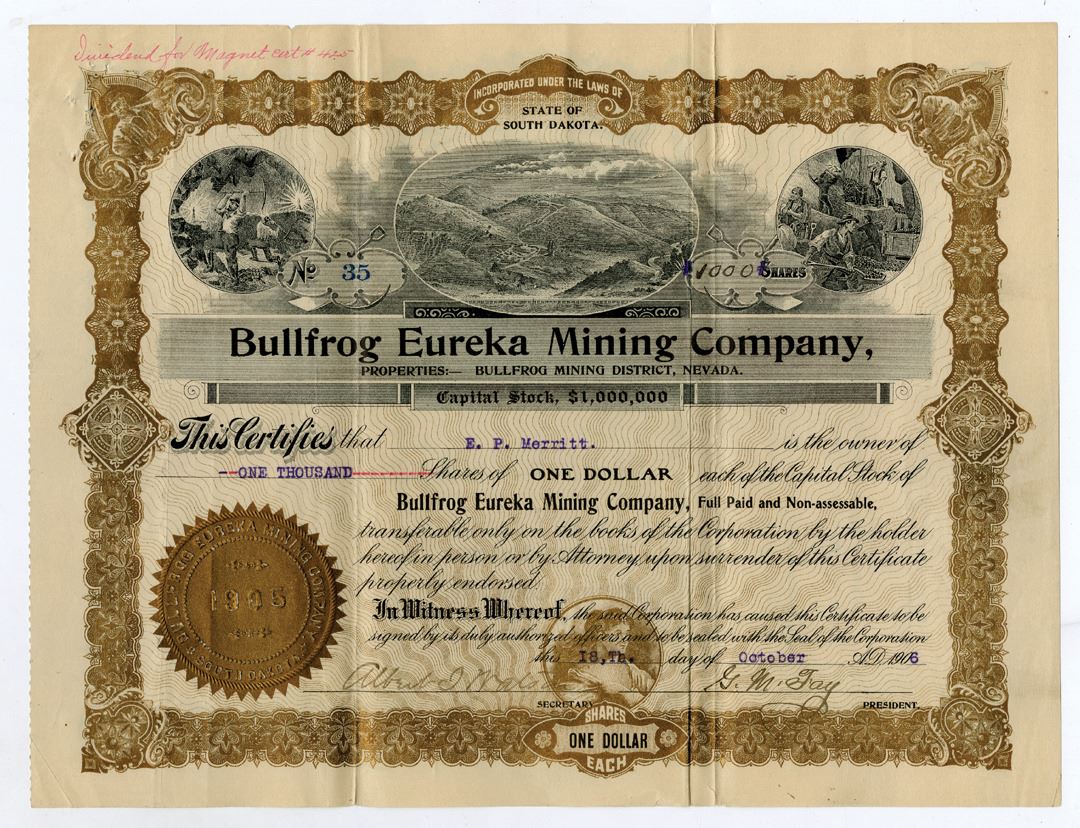 Dividend for Magnet cert # 425
INCORPORATED UNDER THE LAWS OF
STATE OF
SOUTH DAKOTA.
No 35
1000 SHARES
Bullfrog Eureka Mining Company,
PROPERTIES:— BULLFROG MINING DISTRICT, NEVADA.
Capital Stock, $1,000,000
This Certifies that E. P. Merritt. is the owner of
--ONE THOUSAND-------- Shares of ONE DOLLAR each of the Capital Stock of
Bullfrog Eureka Mining Company, Full Paid and Non-assessable,
transferable only on the books of the Corporation by the holder
hereof in person or by Attorney upon surrender of this Certificate
properly endorsed.
In Witness Whereof, the said Corporation has caused this Certificate to be
signed by its duly authorized officers and to be sealed with the Seal of the Corporation
this 18,Th. day of October A.D. 1906
BULLFROG EUREKA MINING COMPANY
1905
SOUTH DAKOTA
Albert J.
G. M. Fay
SECRETARY
PRESIDENT.
SHARES
ONE DOLLAR
EACH